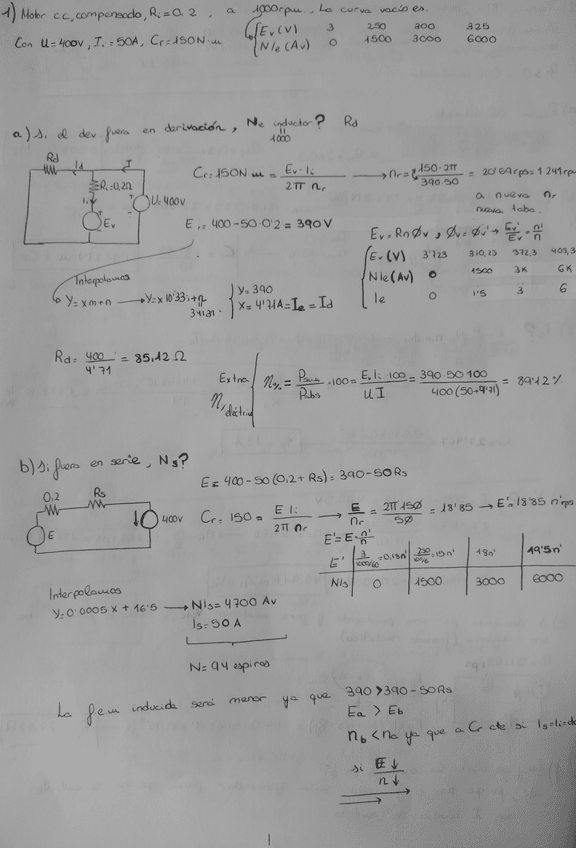 1) Motor c.c, compensado, Ri=0.2, a 1000rpm. La curva vacío es.
Con U=400V, Ii=50A, Cr=150N·m
Ev(V) 3 250 300 325
N/e(Av) 0 1500 3000 6000
a) Si el dev fuera en derivación, Ne inductor? Rd
1000
Rd Id I
Ri=0,2Ω
Ii
U=400V
Ev
Cr=150N m = Ev·Ii / 2π nr → nr = 150·2π / 390·50 = 20'69rps=1241rpm
a nueva nr
nueva tabla.
E1=400-50·0'2=390V
Ev=Rn∅v, ∅v=∅v' → Ev'/Ev = n'/n
Ev(V) 3'723 310,23 372,3 403,3
N/e(Av) 0 1500 3K 6K
Ie 0 1'5 3 6
Interpolamos
y=xm+n → y=x10'33+n
341'31.
y=390
x=4'71A=Ie=Id
Rd=400/4'71=85,12Ω
Extra
η eléctrico
η% = Psum/Pabs·100 = E.Ii·100/U I = 390·50·100/400(50+4'71) = 89'12%
b) Si fuera en serie, Ns?
E=400-50(0,2+Rs)=390-50Rs
0,2 Rs
400V
E
Cr=150= E Ii / 2π nr → E/nr = 2π150/50 = 18'85 → E'=18'85 n'rps
E'=E·n'/n
E' 3/1000/60=0.18n' 250/1000/60=15n' 18n' 19'5n'
N/s 0 1500 3000 6000
Interpolamos
y=0.0005x+16.5 → N/s=4700 Av
Is=50A
N=94 espiras
La fem inducida será menor ya que 390>390-50Rs
Ea > Eb
nb < na ya que a Cr cte si Is=Ii=
si E↓
n↓
1